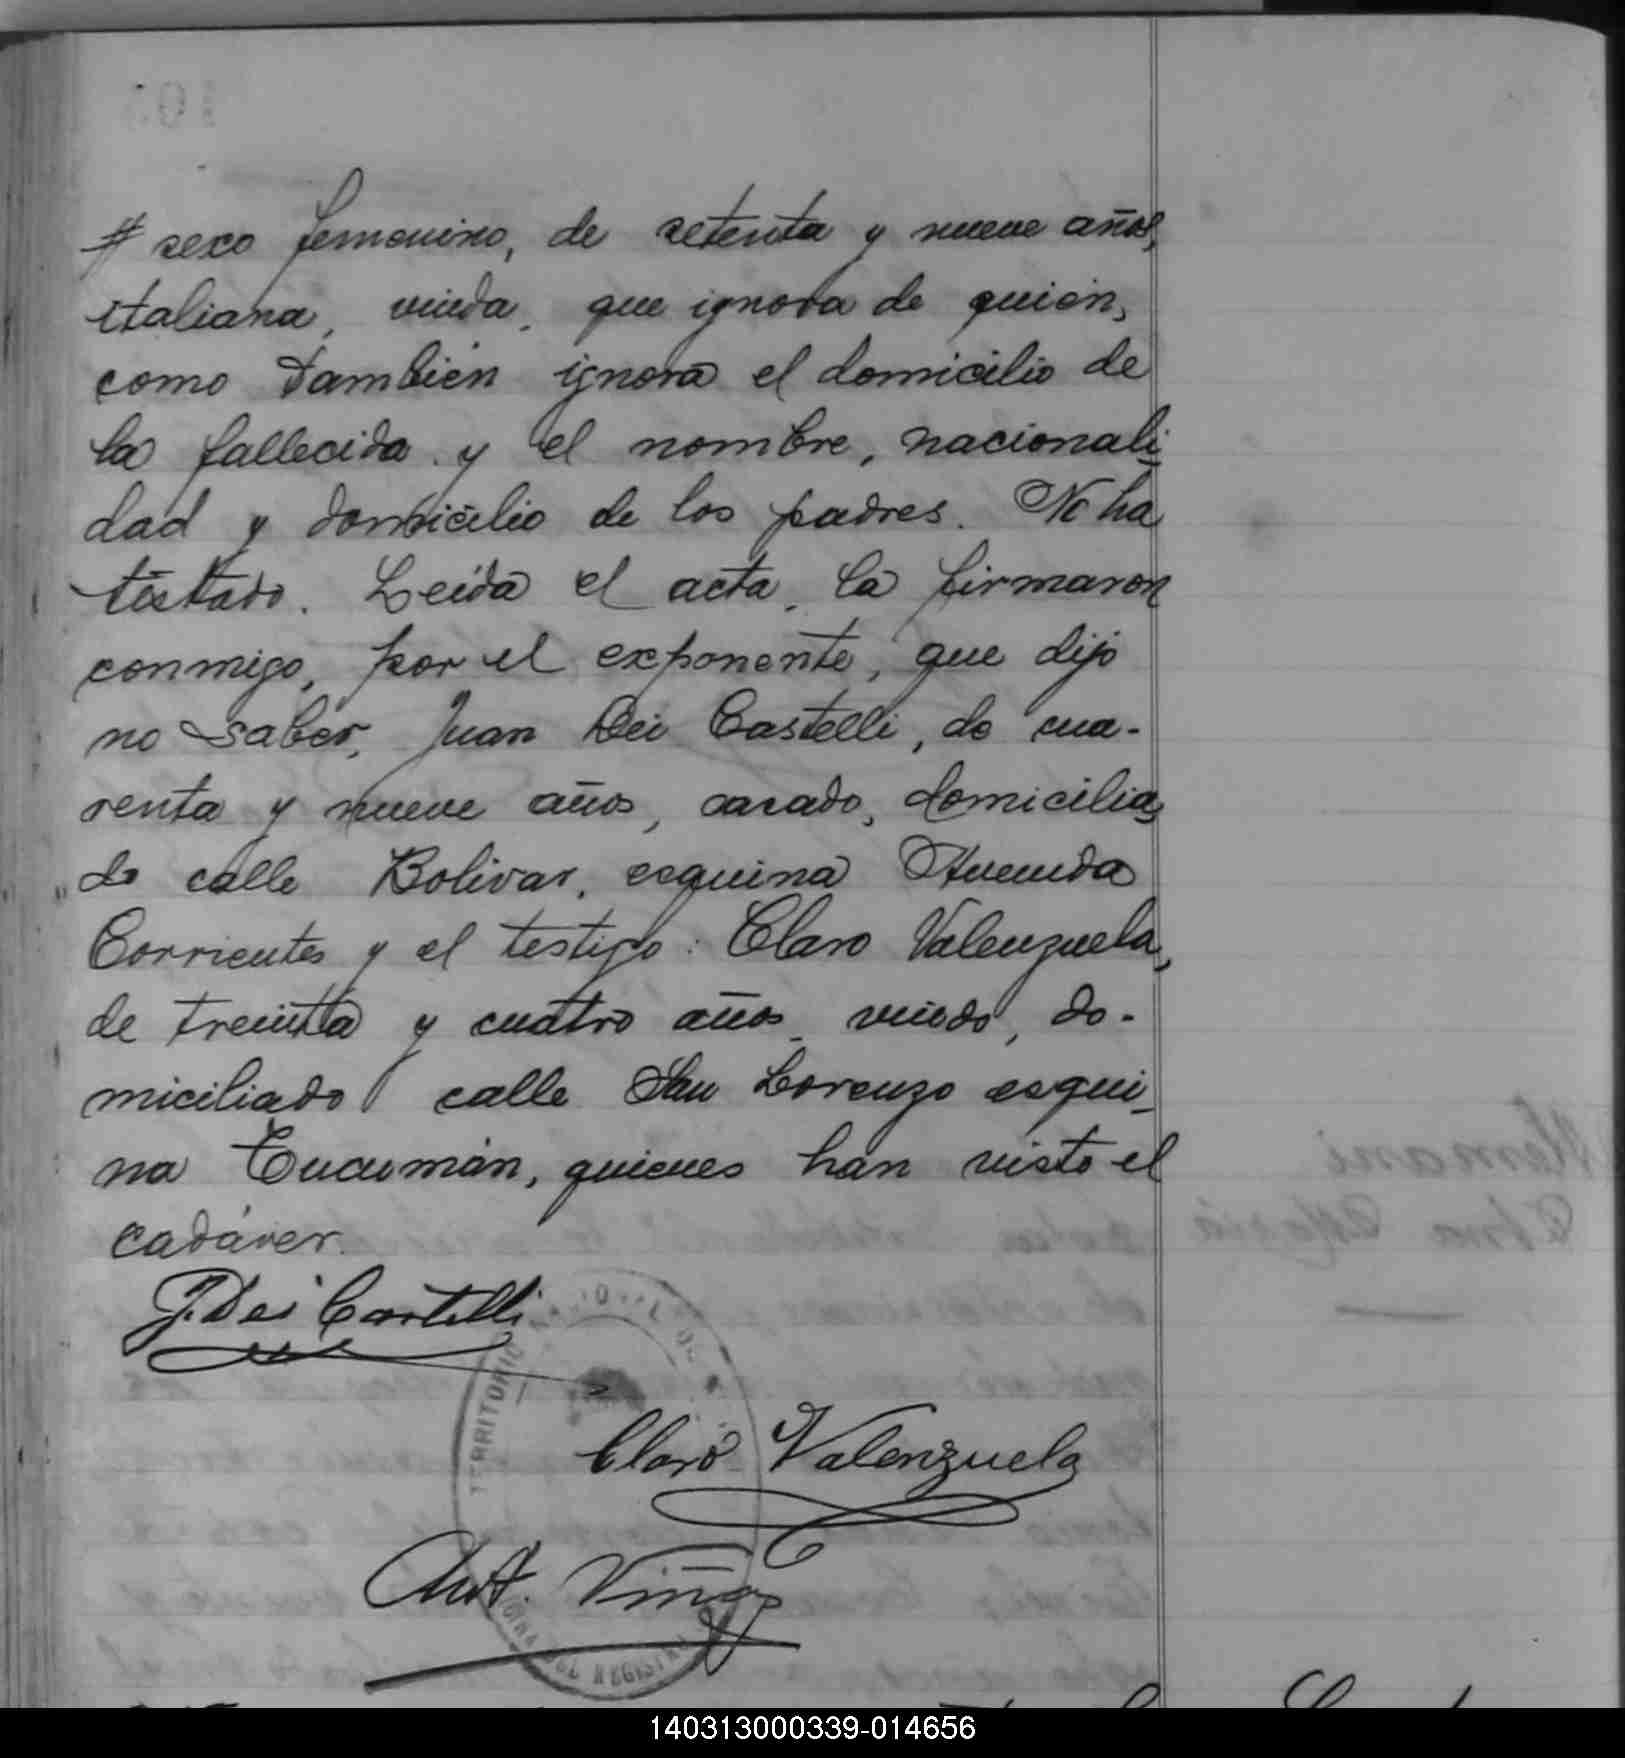 # sexo femenino, de setenta y nueve años,
italiana, viuda, que ignora de quién,
como también ignora el domicilio de
la fallecida y el nombre, nacionali-
dad y domicilio de los padres. No ha
testado. Leída el acta, la firmaron
conmigo, por el exponente, que dijo
no saber, Juan Dei Castelli, de cua-
renta y nueve años, casado, domicilia-
do calle Bolivar, esquina Avenida
Corrientes y el testigo: Claro Valenzuela,
de treinta y cuatro años, viudo, do-
miciliado calle San Lorenzo esqui-
na Tucumán, quienes han visto el
cadáver.
J. Dei Castelli
TERRITORIO NACIONAL DE
Claro Valenzuela
Ant. Viñas
DEL REGISTRO
140313000339-014656